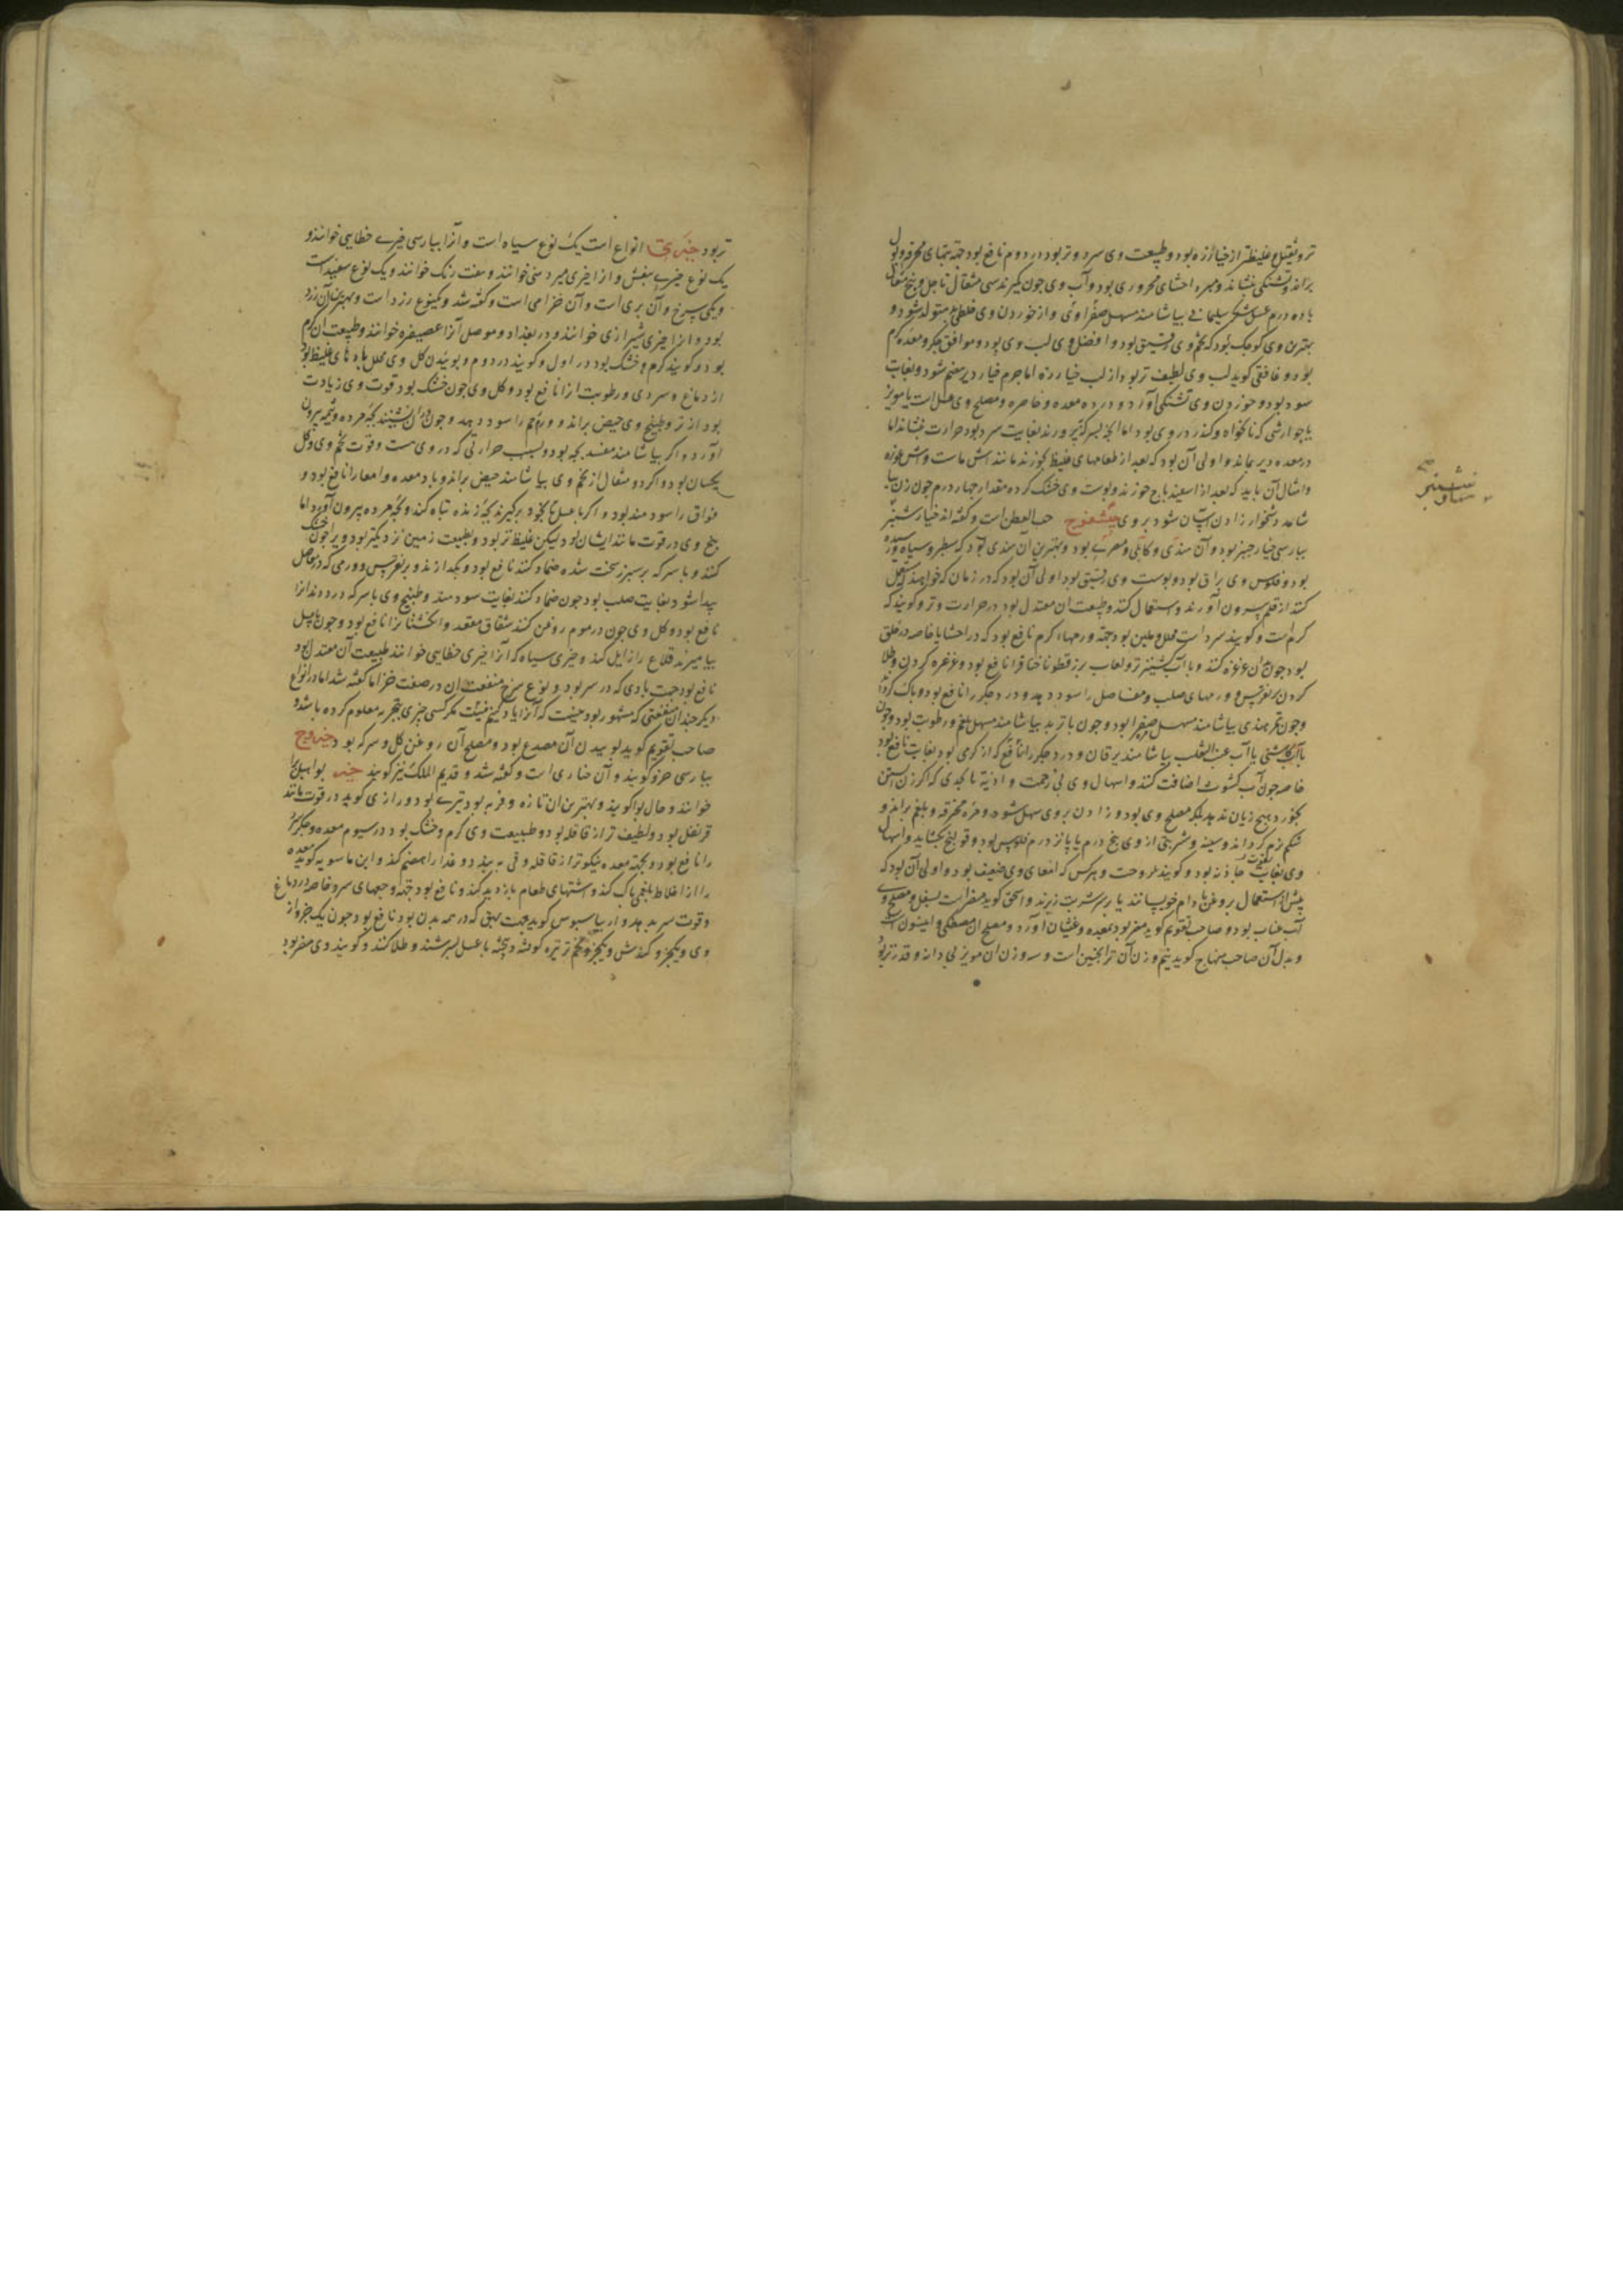 تر و ثقیل و غلیظتر از خیارزه بود و طبیعت وی سرد و تر بود در دوم نافع بود جهة تبهای محرقه و بول
براند و تشنکی بنشاند و مبرد احشای محروری بود و آب وی چون بکیرند سی مثقال تا چهل و پنج مثقال
با ده درم عسل شکر سلیمانی بیاشامند مسهل صفراوی و از خوردن وی خلطی بد متولد شود و
بهترین وی کوچک بود که تخم وی رقیق بود و افضل وی لب وی بود و موافق جکر و معده کرم
بود و غافقی کوید لب وی لطیف تر بود از لب خیارزه اما جرم خیار دیر هضم شود و بغایت
سود بود و خوردن وی تشنکی آورد و درد معده و خاصره و مصلح وی عسل است یا مویز
یا جوارشی که نانخواه و کندر در وی بود اما انچه بسرکه پرورند بغایت سرد بود حرارت بنشاند اما
در معده دیر بماند و اولی آن بود که بعد از طعامهای غلیظ بخورند مانند آش ماست و آش غوزه
و امثال آن باید که بعد از اسفیدباج خورند و پوست وی خشک کرده مقدار چهار درم چون زن بیا
شامد دشخوار زادن آسان شود بر وی خیشفوج حب القطن است و کفته اند خیارشنبر
بپارسی خیار چنبر بود و آن هندی و کابلی و مصری بود و بهترین آن هندی بود که سطبر و سیاه و رسیده
بود و فلوس وی براق بود و پوست وی رقیق بود اولی آن بود که در زمان که خواهند مستعمل
کنند از قلم بیرون آورند و استعمال کنند و طبیعت آن معتدل بود در حرارت و تر و کویند که
کرم است و کویند سرد است محلل و ملین بود جهة ورمهاء کرم نافع بود که در احشا باخاصه در حلق
بود چون بآن غرغره کنند و با آب کشنیز تر و لعاب بزرقطونا خناق را نافع بود و غرغره کردن و طلا
کردن بر نقرس و ورمهای صلب و مفاصل را سود دهد و درد جکر را نافع بود و پاک کرداند
و چون تمر هندی بیاشامند مسهل صفرا بود و چون با تربد بیاشامند مسهل بلغم و رطوبت بود و چون
با آب کاسنی یا آب عنب الثعلب بیاشامند یرقان و درد جکر را نافع که از کرمی بود بغایت نافع بود
خاصه چون آب کشوث اضافت کنند و اسهال وی بی زحمت و اذیة تا بحدی که اکر زن آبستن
بخورد هیچ زیان ندهد بلکه مصلح وی بود و زادن بر وی سهل شود و مره محرقه و بلغم براند و
شکم نرم کرداند و سینه و شربتی از وی پنج درم یا پانزده درم فلوس بود و قولنج بکشاید و اسهال
وی بغایت جاذبه بود و کویند لزوجت و هرکس که امعای وی ضعیف بود و اولی آن بود که
پیش از استعمال بروغن بادام خویسانند یا بر سر شربت ریزند و اسحق کوید مضر است بسفل و مصلح وی
آب عناب بود و صاحب تقویم کوید مضر بود بمعده و غثیان آورد و مصلح آن مصطکی و انیسون است
و بدل آن صاحب منهاج کوید نیم وزن آن ترانجبین است و سه وزن آن مویز بی دانه و قدر تربد
تر بود خیری انواع است یک نوع سیاه است و آنرا بپارسی خیری خطایی خوانند و
یک نوع خیری بنفش و آنرا خیری میردینی خوانند و هفت رنک خوانند و یک نوع سفید است
و یکی سرخ و آن بری است و آن خزامی است و کفته شد و یکنوع زرد است و بهترین آن زرد
بود و آنرا خیری شیرازی خوانند و در بغداد و موصل آنرا عصیفره خوانند و طبیعت آن کرم
بود و کویند کرم و خشک بود در اول و کویند در دوم و بوئیدن کل وی محلل بادهای غلیظ بود
از دماغ و سردی و رطوبت آنرا نافع بود و کل وی چون خشک بود قوت وی زیادت
بود از تر و طبیخ وی حیض براند و ورم رحم را سود دهد و چون در آن نشینند بچه مرده و مشیمه بیرون
آورد و اکر بیاشامند مفسد بچه بود و بسبب حرارتی که در وی هست و قوت تخم وی و کل
یکسان بود و اکر دو مثقال از تخم وی بیاشامند حیض براند و باد معده و امعا را نافع بود و
فواق را سودمند بود و اکر با عسل بخود برکیرند بچه زنده تباه کند و بچه مرده بیرون آورد اما
بیخ وی در قوت مانند ایشان بود لیکن غلیظ تر بود و بطبیعت زمین نزدیکتر بود و ویرا چون خشک
کنند و با سرکه بر سپرز سخت شده ضماد کنند نافع بود و بکدازند و بر نقرس و ورمی که در مفاصل
پیدا شود بغایت صلب بود چون ضماد کنند بغایت سودمند و طبیخ وی با سرکه درد دندانرا
نافع بود و کل وی چون در موم روغن کنند شقاق مقعد و انکشتانرا نافع بود و چون با عسل
بیامیزند قلاع را زایل کند و خیری سیاه که آنرا خیری خطایی خوانند طبیعت آن معتدل بود
نافع بود جهت بادی که در سر بود و نوع سرخ منفعت آن در صفت خزاما کفته شد اما در انواع
دیکر چندان منفعتی که مشهور بود نیست که آنرا یاد کنیم مکر کسی چیزی بتجربه معلوم کرده باشد و
صاحب تقویم کوید بوییدن آن مصدع بود و مصلح آن روغن کل و سرکه بود خیروج
بپارسی خرو کویند و آن خباری است و کفته شد و قدیم الملک نیز کویند خیر بوا هیل بوا
خوانند و حال بوا کویند و بهترین آن تازه و فربه بود تیزی بود و رازی کوید در قوت مانند
قرنفل بود و لطیف تر از قاقله بود و طبیعت وی کرم و خشک بود در سیوم معده و جکر سرد
را نافع بود و بجهة معده نیکوتر از قاقله و قی ببندد و غذا را هضم کند و ابن ماسویه کوید معده
را از اخلاط بلغمی پاک کند و اشتهای طعام بازدید کند و نافع بود جهة وجعهای سر و خاصه در دماغ
و قوت سر بدهد و ارسیاسیوس کوید جهت بهق که در همه بدن بود نافع بود چون یک جزو از
وی و یکجزو کندش و یکجزو تخم ترتیزه کوفته و پخته با عسل بسرشند و طلا کنند و کویند وی مضر بود